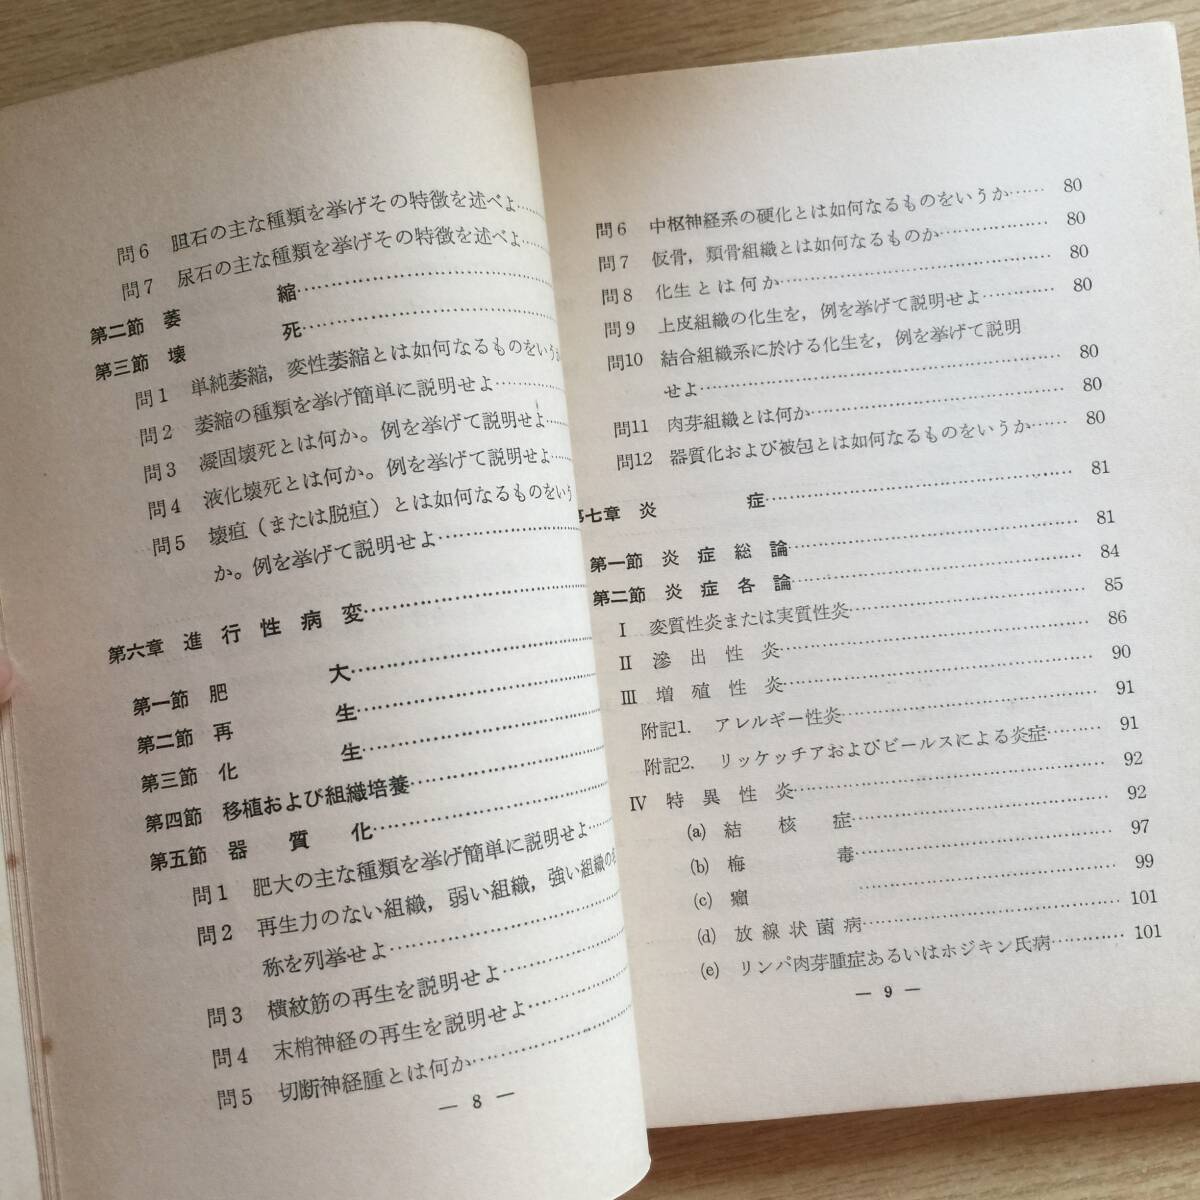 問6 胆石の主な種類を挙げその特徴を述べよ……
問7 尿石の主な種類を挙げその特徴を述べよ……
第二節 萎 縮……
第三節 壊 死……
問1 単純萎縮，変性萎縮とは如何なるものをいうか
問2 萎縮の種類を挙げ簡単に説明せよ……
問3 凝固壊死とは何か。例を挙げて説明せよ……
問4 液化壊死とは何か。例を挙げて説明せよ……
問5 壊疽（または脱疽）とは如何なるものをいう
か。例を挙げて説明せよ……
第六章 進行性病変……
第一節 肥 大……
第二節 再 生……
第三節 化 生……
第四節 移植および組織培養……
第五節 器質化……
問1 肥大の主な種類を挙げ簡単に説明せよ……
問2 再生力のない組織，弱い組織，強い組織の名
称を列挙せよ……
問3 横紋筋の再生を説明せよ……
問4 末梢神経の再生を説明せよ……
問5 切断神経腫とは何か……
― 8 ―
問6 中枢神経系の硬化とは如何なるものをいうか…… 80
問7 仮骨，類骨組織とは如何なるものか…… 80
問8 化生とは何か…… 80
問9 上皮組織の化生を，例を挙げて説明せよ…… 80
問10 結合組織系に於ける化生を，例を挙げて説明
せよ…… 80
問11 肉芽組織とは何か…… 80
問12 器質化および被包とは如何なるものをいうか…… 80
第七章 炎 症…… 81
第一節 炎症総論…… 81
第二節 炎症各論…… 84
Ⅰ 変質性炎または実質性炎…… 85
Ⅱ 滲出性炎…… 86
Ⅲ 増殖性炎…… 90
附記1. アレルギー性炎…… 91
附記2. リッケッチアおよびビールスによる炎症…… 91
Ⅳ 特異性炎…… 92
(a) 結核症…… 92
(b) 梅 毒…… 97
(c) 癩 …… 99
(d) 放線状菌病…… 101
(e) リンパ肉芽腫症あるいはホジキン氏病…… 101
― 9 ―